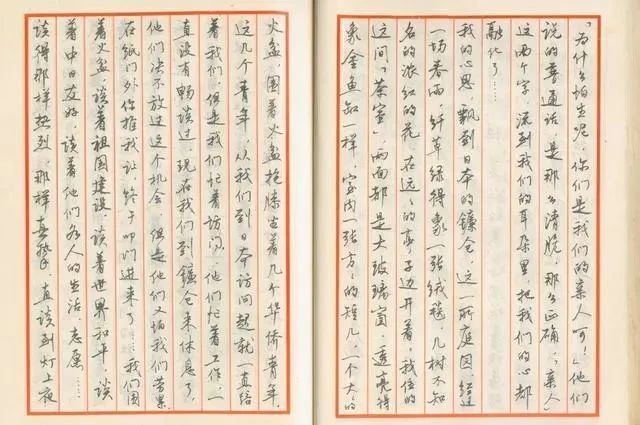 「为什么怕生呢，你们是我们的亲人呵！」他们
说的普通话是那么清脆，那么正确，「亲人」
这两个字，流到我们的耳朵里，把我们的心都
融化了……
我的心思飘到日本的镰仓，这一所庭园，经过
一场春雨，纤草绿得象一张绒毯，几树不知
名的浓红的花，在远々的亭子边开着，我住的
这间「茶室」，两面都是大玻璃窗，透亮得
象金鱼缸一样，室内一张方々的矮几，一个大々的
火盆，围着火盆抱膝坐着几个华侨青年。
这几个青年，从我们到日本访问起就一直陪
着我们，但是我们忙着访问，他们忙着工作，一
直没有畅谈过，现在我们到镰仓来休息了，
他们决不放过这个机会，但是他们又怕我们劳累
在纸门外你推我让，终于叩门进来了……我们围
着火盆，谈着祖国建设，谈着世界和平，谈
着中日友好，谈着他们各人的生活，志愿……
谈得那样热烈，那样真挚，直谈到灯上夜